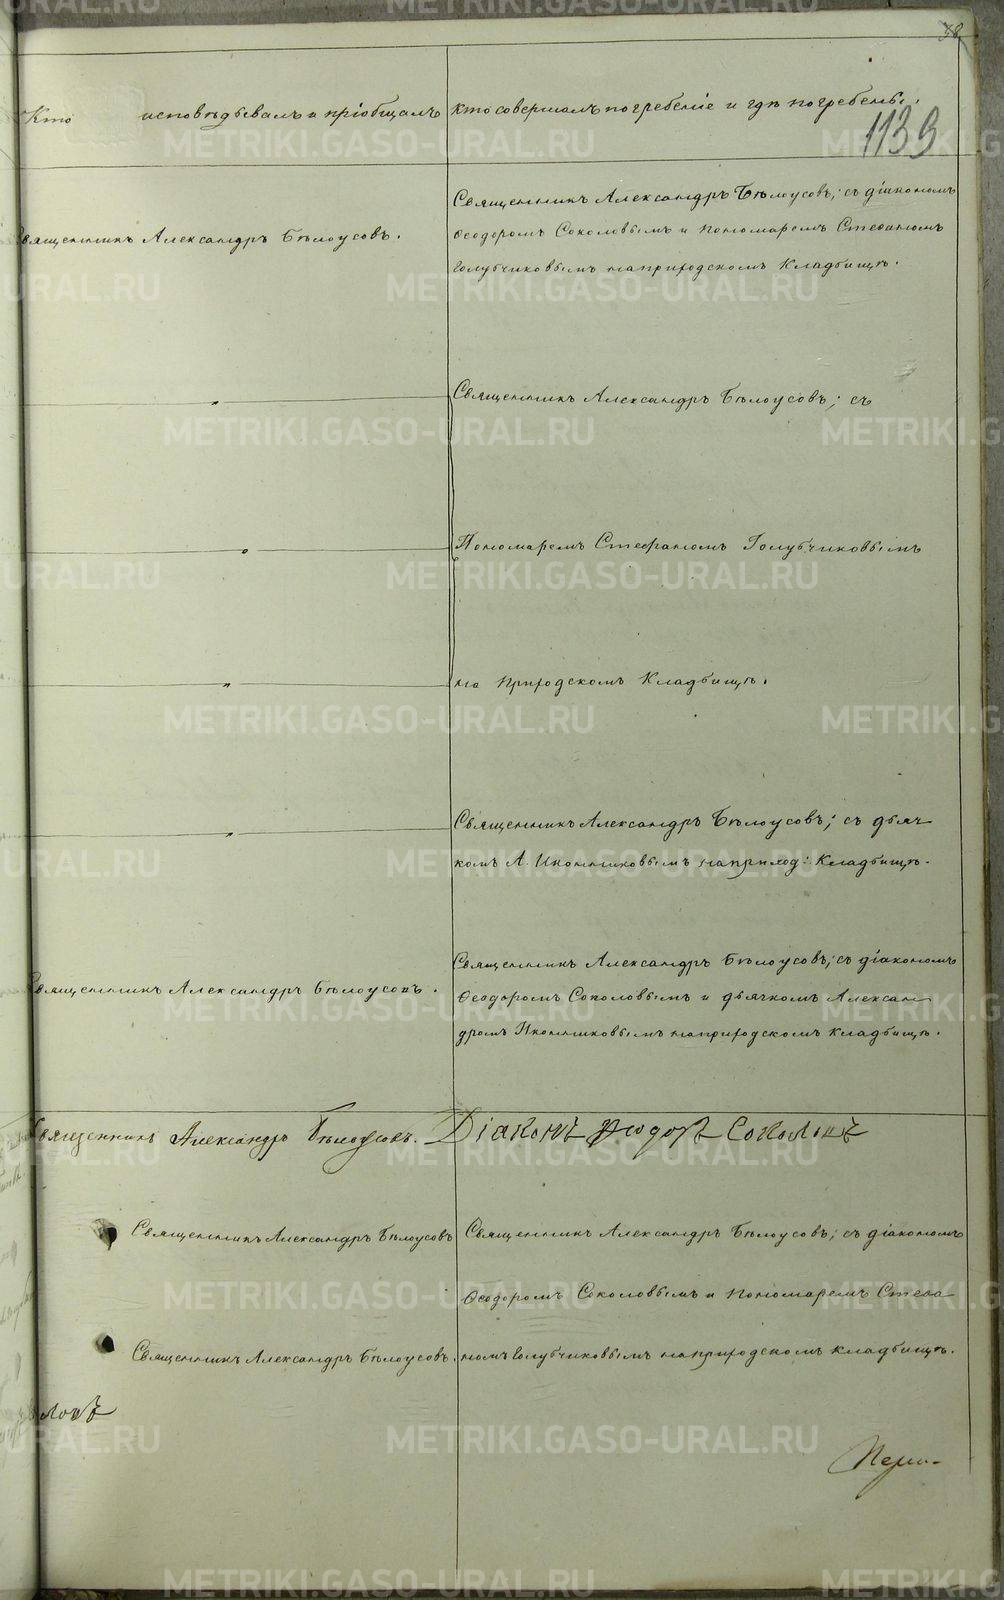 38
Кто исповѣдывалъ и пріобщалъ
кто совершалъ погребеніе и гдѣ погребены.
1139
Священникъ Александръ Бѣлоусовъ.
Священникъ Александръ Бѣлоусовъ; съ діакономъ
Ѳеодоромъ Соколовымъ и пономаремъ Стефаномъ
Голубчиковымъ на
Кладбищѣ.
„
Священникъ Александръ Бѣлоусовъ; съ
„
Пономаремъ Стефаномъ Голубчиковымъ
„
на
Кладбищѣ.
„
Священникъ Александръ Бѣлоусовъ; съ дьяч
комъ А. Иконниковымъ на приход: Кладбищѣ.
Священникъ Александръ Бѣлоусовъ.
Священникъ Александръ Бѣлоусовъ; съ діакономъ
Ѳеодоромъ Соколовымъ и дьячкомъ Алексан
дромъ Иконниковымъ на
кладбищѣ.
Священникъ Александръ Бѣлоусовъ. Діаконъ Ѳеодоръ Соколовъ
Священникъ Александръ Бѣлоусовъ
Священникъ Александръ Бѣлоусовъ; съ діакономъ
Ѳеодоромъ Соколовымъ и пономаремъ Стефа
Священникъ Александръ Бѣлоусовъ.
номъ Голубчиковымъ на
кладбищѣ.
METRIKI.GASO-URAL.RU